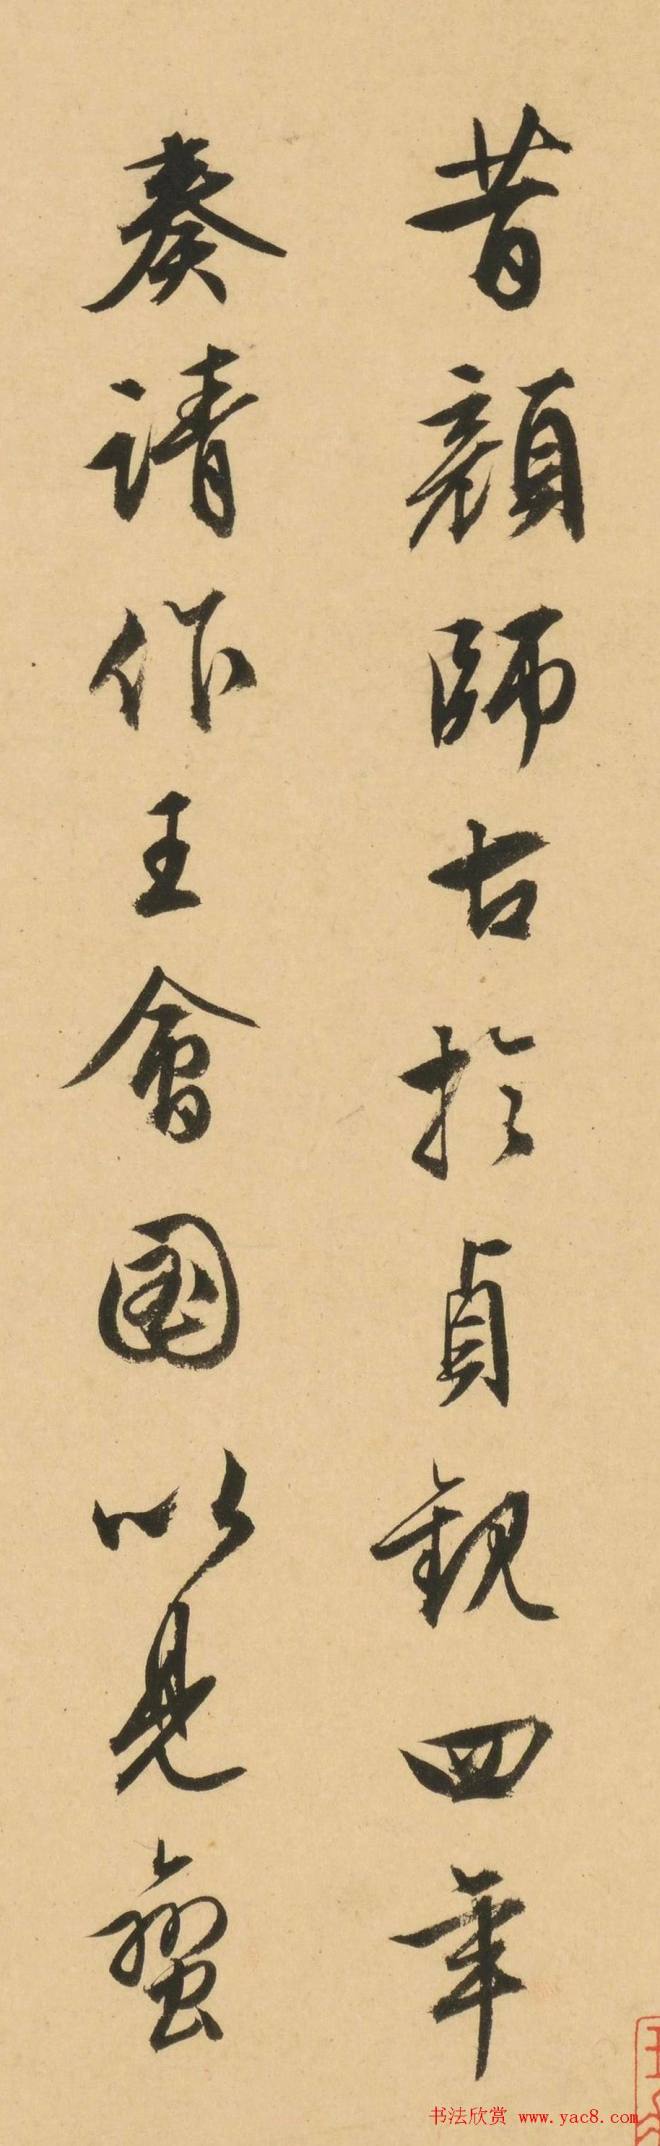 昔顏師古於貞觀四年
奏請作王會圖以見蠻
书法欣赏 www.yac8.com